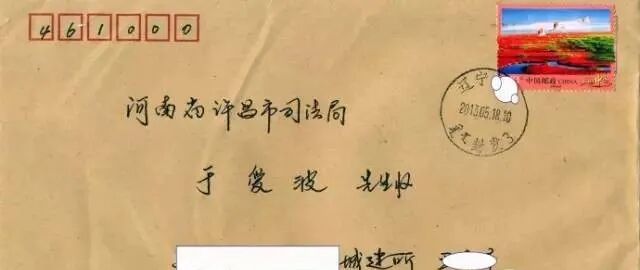 461000
中国邮政 CHINA
辽宁
2013.05.18.20
3
河南省许昌市司法局
于爱波 先生收
城建所